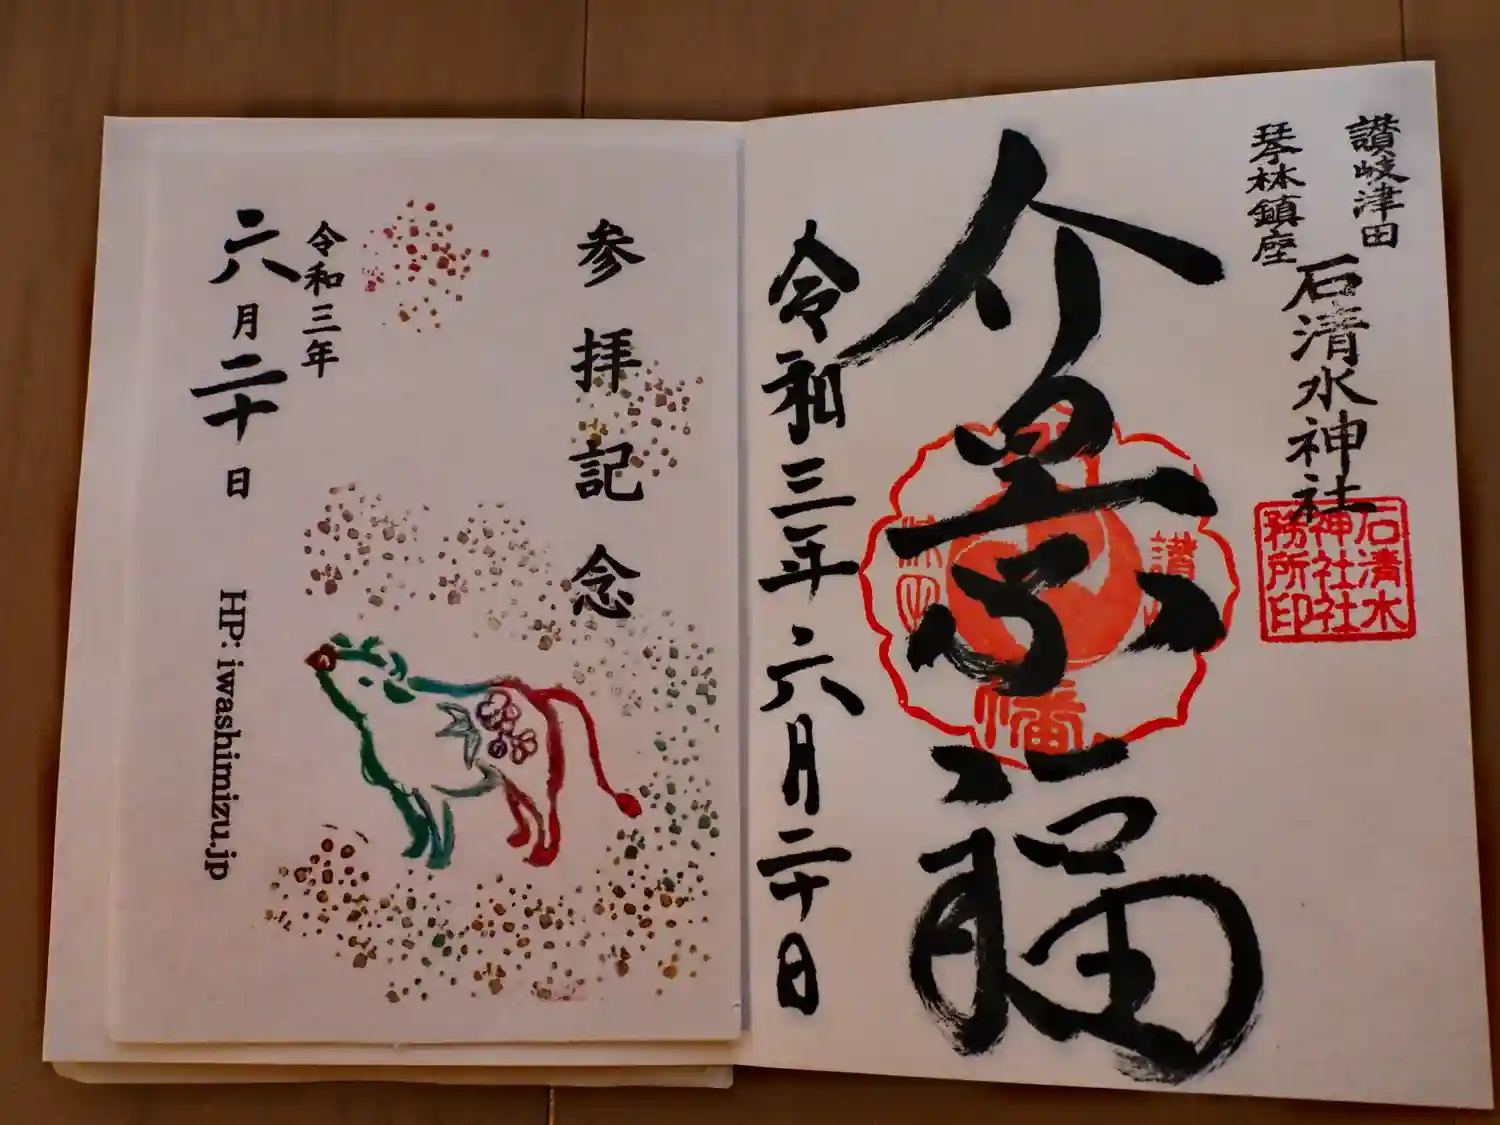 讃岐津田
琴林鎮座
石清水神社
石清水
神社社
務所印
介景福
讃
幡
令和三年六月二十日
参拝記念
令和三年
六月二十日
HP: iwashimizu.jp